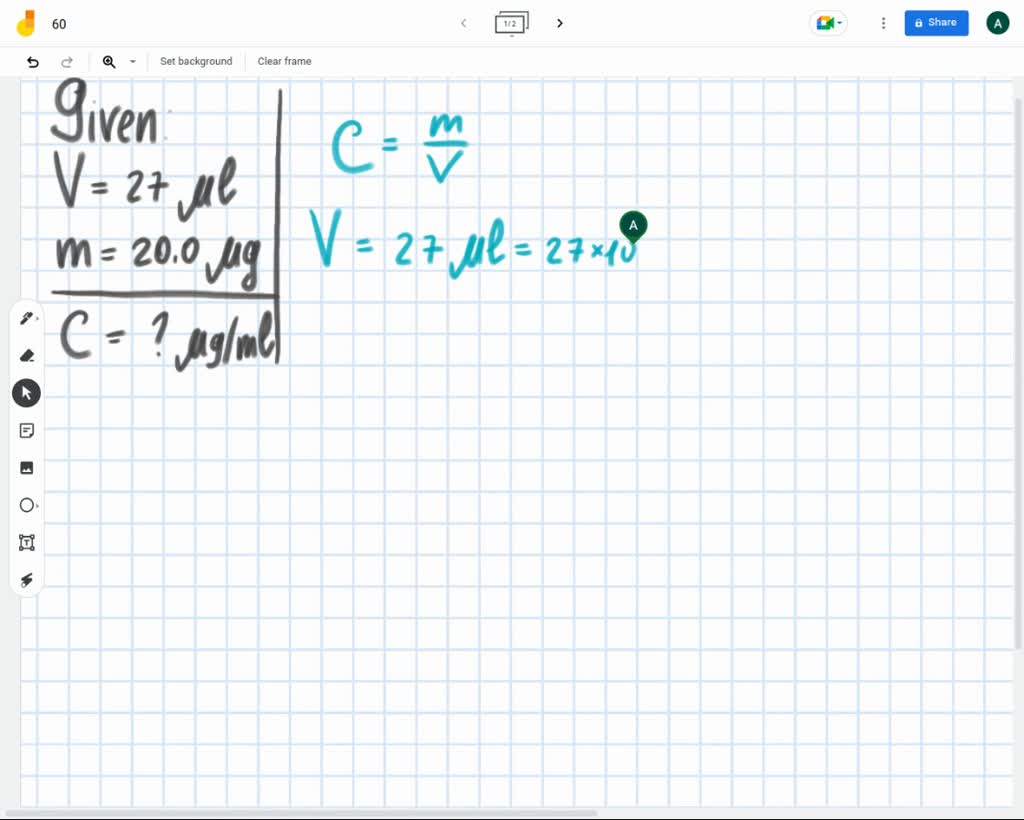 60
1/2
Share
A
Set background
Clear frame
Given:
V = 27 μl
m = 20.0 μg
C = ? μg/ml
C = m/V
V = 27 μl = 27 × 10
A